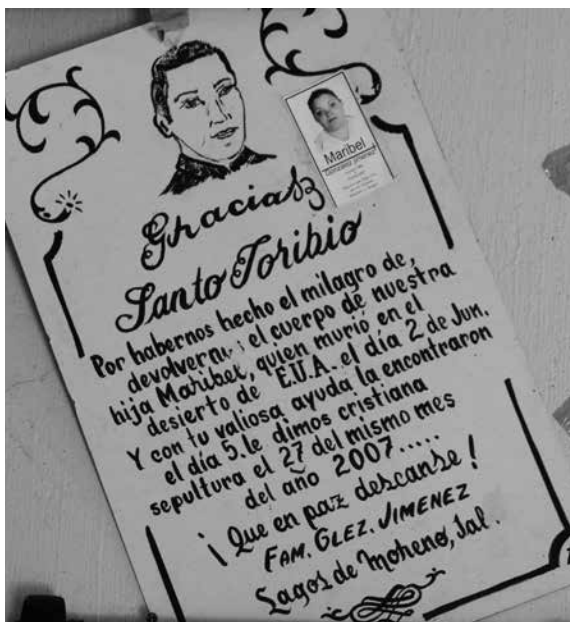 Maribel
Gracias
Santo Toribio
Por habernos hecho el milagro de,
devolvernos el cuerpo de nuestra
hija Maribel, quien murió en el
desierto de E.U.A. el día 2 de Jun.
Y con tu valiosa ayuda la encontraron
el día 5. le dimos cristiana
sepultura el 27 del mismo mes
del año 2007.....
¡Que en paz descanse!
FAM. GLEZ. JIMENEZ
Lagos de Moreno, Jal.